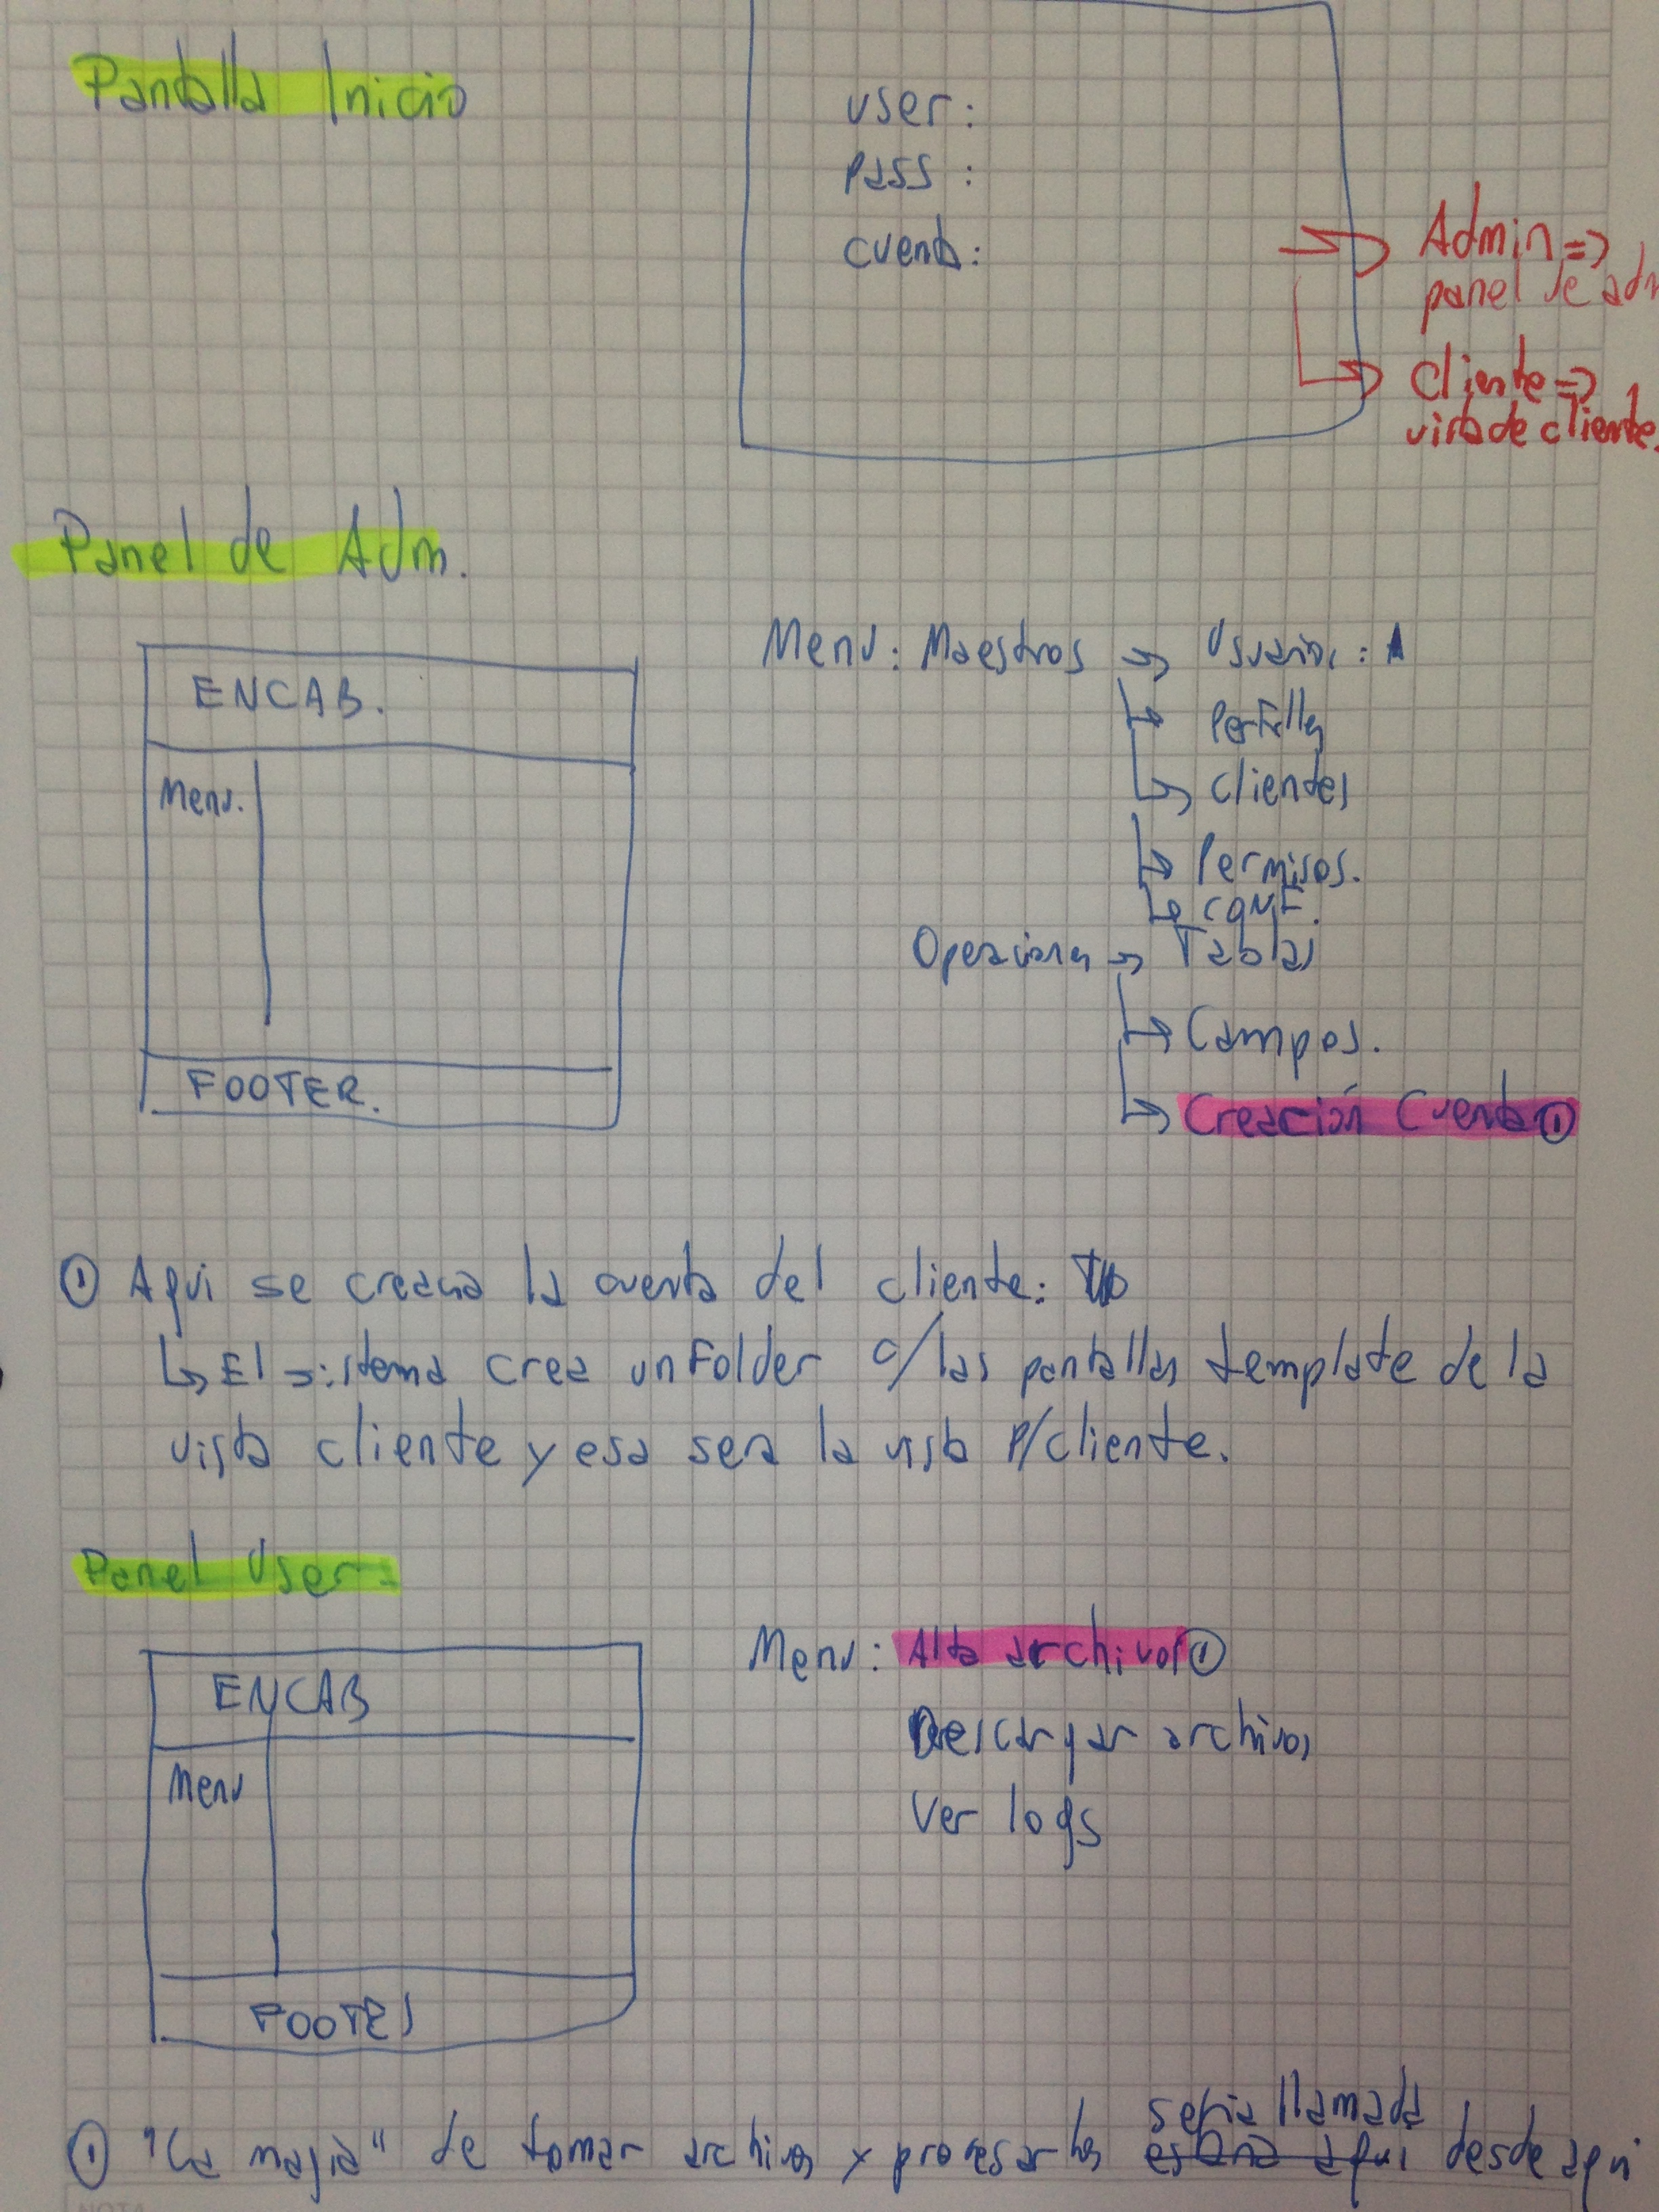 Pantalla Inicio
user:
pass:
cuenta:
Admin =>
panel de adm
Cliente =>
vista de cliente.
Panel de Adm.
ENCAB.
Menu.
FOOTER.
Menu: Maestros → Usuarios: A
→ Perfiles
→ Clientes
→ Permisos.
→ CONF.
Operaciones → Tablas
→ Campos.
→ Creación Cuenta ①
① Aqui se crearia la cuenta del cliente:
↳ El sistema crea un Folder c/las pantallas template de la
vista cliente y esa sera la vista P/cliente.
Panel User:
ENCAB
Menu
FOOTER
Menu: Alta archivos ①
Descargar archivos
Ver logs
seria llamada
① "La magia" de tomar archivos y procesarlos estaria aqui desde aqui
NOTA